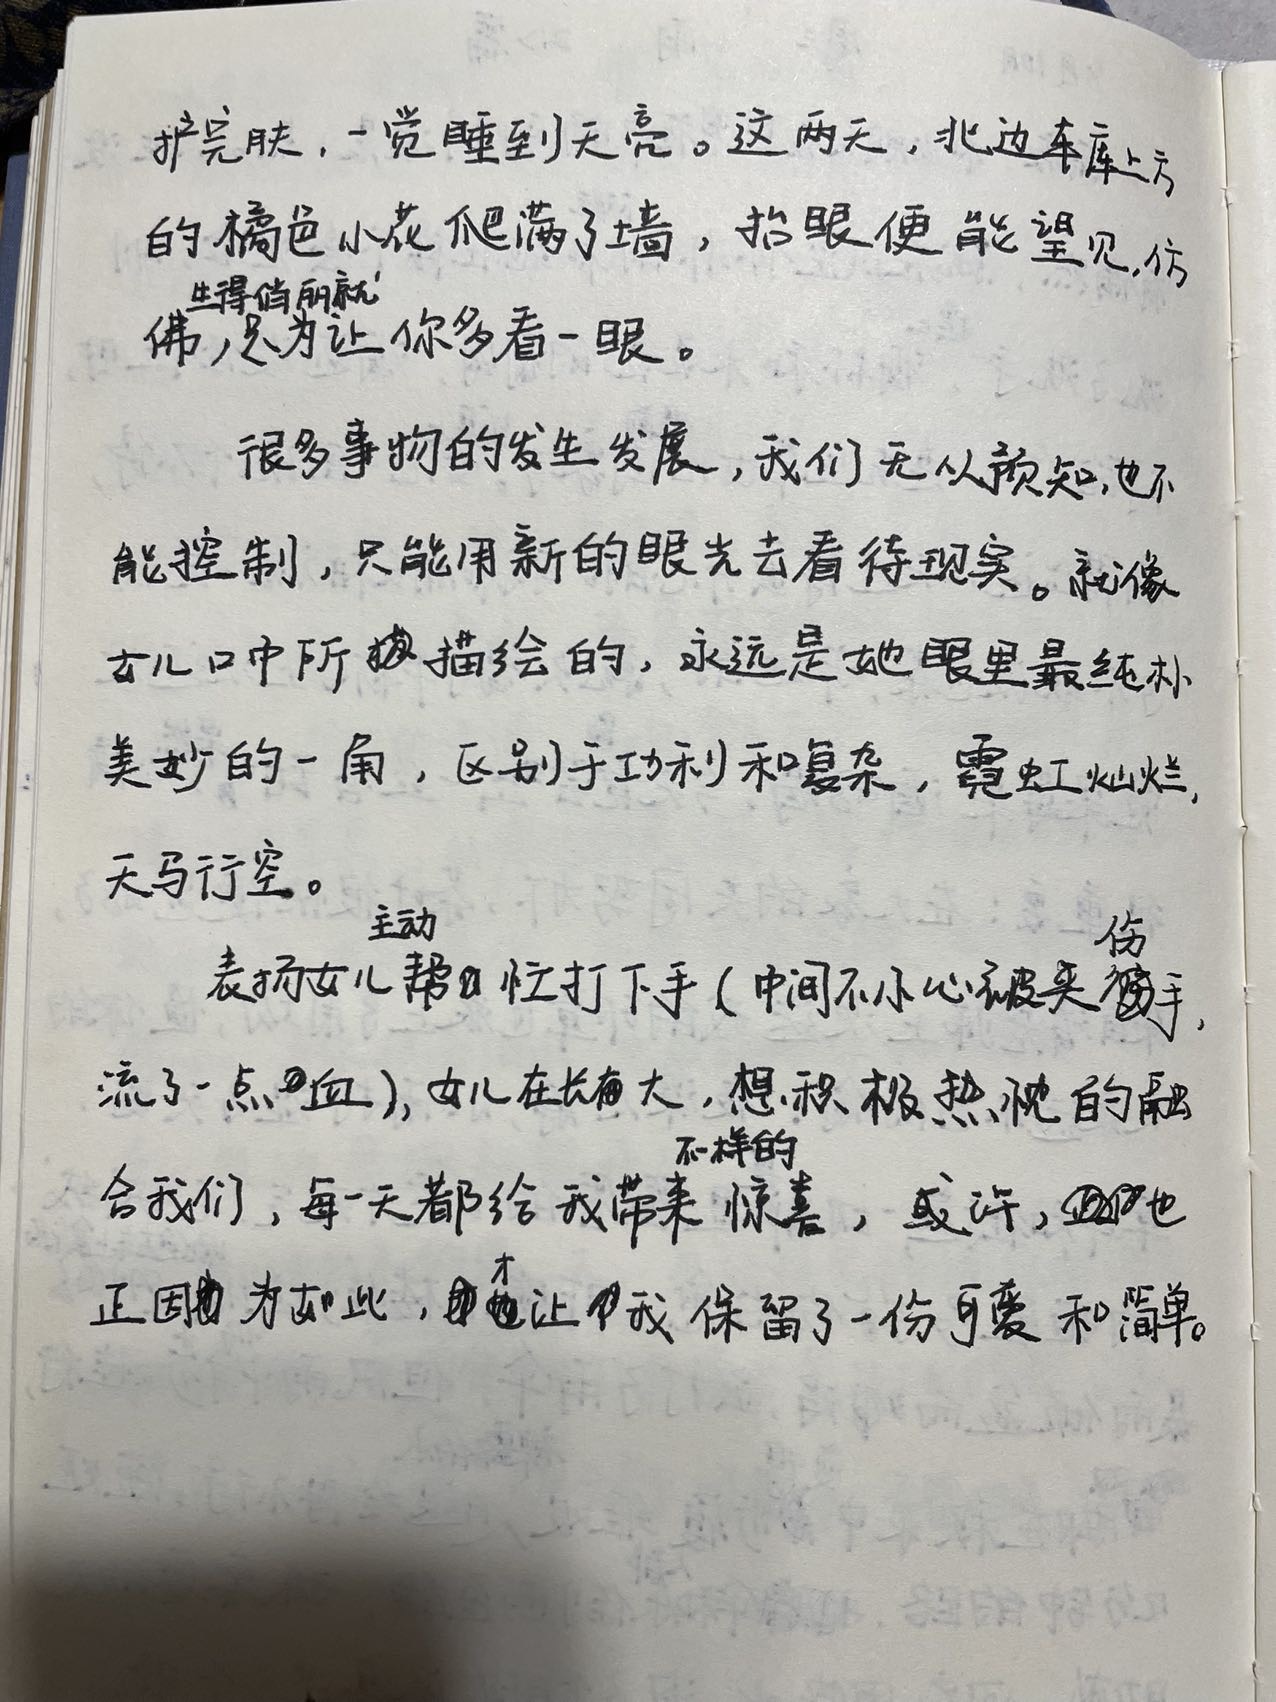 护完肤，一觉睡到天亮。这两天，北边车库上方
的橘色小花爬满了墙，抬眼便能望见，仿
生得俏丽就
佛，只为让你多看一眼。
很多事物的发生发展，我们无从预知，也不
能控制，只能用新的眼光去看待现实。就像
女儿口中所描绘的，永远是她眼里最纯朴
美妙的一角，区别于功利和复杂，霓虹灿烂，
天马行空。
主动
伤
表扬女儿帮忙打下手（中间不小心被夹手，
流了一点血），女儿在长大，想积极热忱的融
不一样的
合我们，每一天都给我带来惊喜，或许，也
才
正因为如此，让我保留了一份可爱和简单。